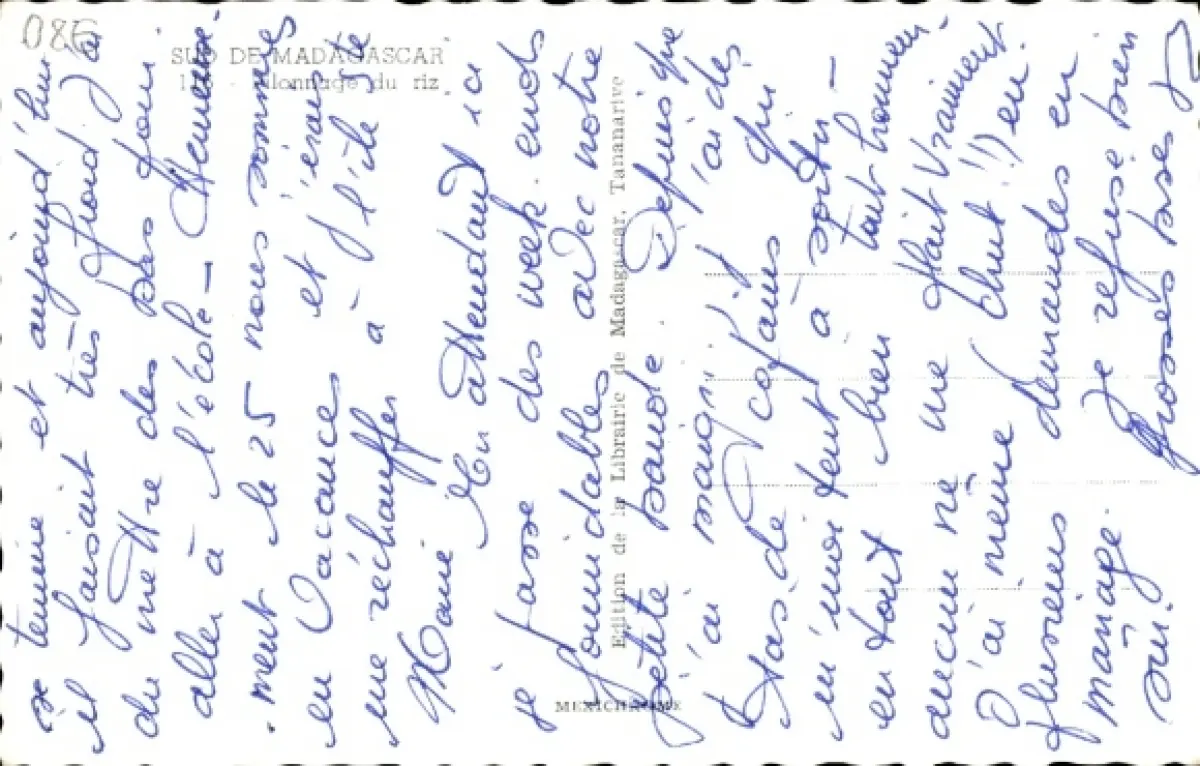 086
SUD DE MADAGASCAR
Pilonnage du riz
Edition de la Librairie de Madagascar, Tananarive
MEXICHROME
se termine et aujourd'hui
il faisait très froid. J'ai
du mettre des bas pour
aller à l'école - Heureuse-
ment le 25 nous sommes
en vacances et j'irais
me réchauffer à l'ile Ste
Marie. En attendant ici
je passe des week-ends
formidables avec notre
petite bande. Depuis que
j'ai maigri j'ai des
tas de copains qui
m'invitent à sortir -
en tout bien tout honneur
aucun ne me plait vraiment
J'ai même (chut!!) eu
plusieurs demandes en
mariage. Je refuse bien
sûr. Grosses bises